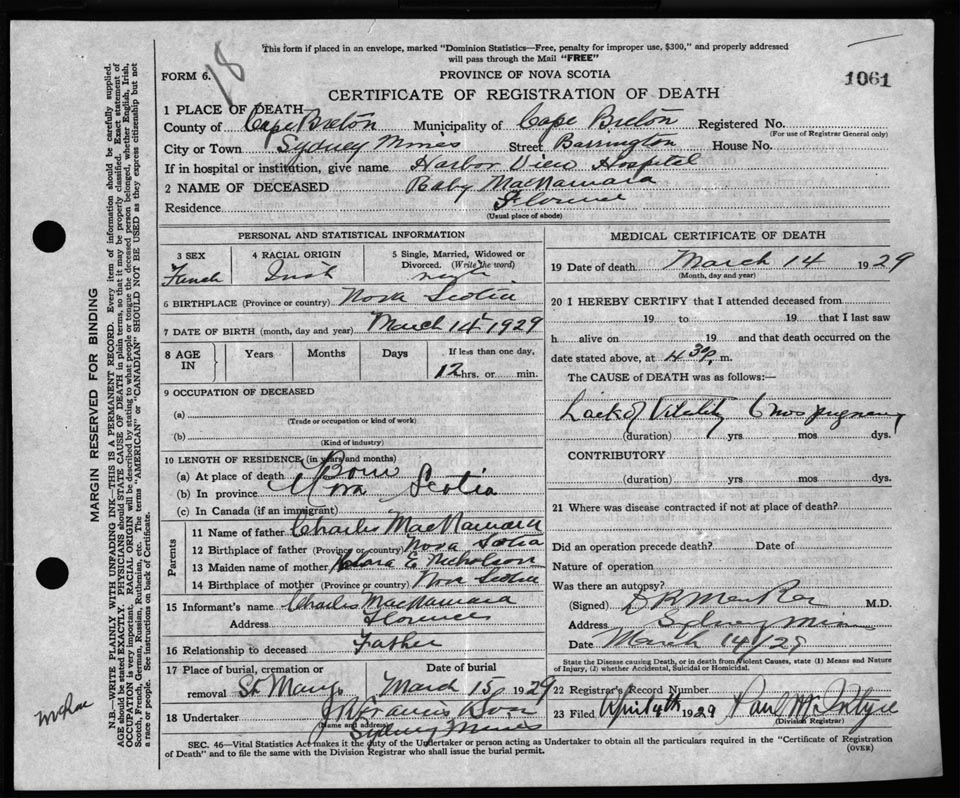 18
This form if placed in an envelope, marked "Dominion Statistics—Free, penalty for improper use, $300," and properly addressed
will pass through the Mail "FREE"
FORM 6.
PROVINCE OF NOVA SCOTIA
1061
CERTIFICATE OF REGISTRATION OF DEATH
1 PLACE OF DEATH
County of Cape Breton Municipality of Cape Breton Registered No.
(For use of Registrar General only)
City or Town Sydney Mines Street Barrington House No.
If in hospital or institution, give name Harbor View Hospital
2 NAME OF DECEASED Baby MacNamara
Residence Florence
(Usual place of abode)
PERSONAL AND STATISTICAL INFORMATION
3 SEX
4 RACIAL ORIGIN Irish
5 Single, Married, Widowed or
Divorced. (Write the word)
6 BIRTHPLACE (Province or country) Nova Scotia
7 DATE OF BIRTH (month, day and year) March 14 1929
8 AGE IN Years Months Days If less than one day,
12 hrs. or min.
9 OCCUPATION OF DECEASED
(a)
(Trade or occupation or kind of work)
(b)
(Kind of industry)
10 LENGTH OF RESIDENCE (in years and months)
(a) At place of death Born
(b) In province Nova Scotia
(c) In Canada (if an immigrant)
Parents
11 Name of father Charles MacNamara
12 Birthplace of father (Province or country) Nova Scotia
13 Maiden name of mother E Nicholson
14 Birthplace of mother (Province or country) Nova Scotia
15 Informant's name Charles MacNamara
Address Florence
16 Relationship to deceased Father
17 Place of burial, cremation or
removal St Marys
Date of burial
March 15 1929
18 Undertaker Francis
(Name and address)
Sydney Mines
MEDICAL CERTIFICATE OF DEATH
19 Date of death March 14 1929
(Month, day and year)
20 I HEREBY CERTIFY that I attended deceased from
19 to 19 that I last saw
h alive on 19 and that death occurred on the
date stated above, at 4.30 p. m.
The CAUSE of DEATH was as follows:—
Lack of Vitality 6 mos pregnancy
(duration) yrs. mos dys.
CONTRIBUTORY
(duration) yrs. mos dys.
21 Where was disease contracted if not at place of death?
Did an operation precede death? Date of
Nature of operation
Was there an autopsy?
(Signed) M.D.
Address Sydney Mines
Date March 14/29
State the Disease causing Death, or in death from Violent Causes, state (1) Means and Nature
of Injury, (2) whether Accidental, Suicidal or Homicidal.
22 Registrar's Record Number
23 Filed April 4th 1929 Paul McIntyre
(Division Registrar)
SEC. 46—Vital Statistics Act makes it the duty of the Undertaker or person acting as Undertaker to obtain all the particulars required in the "Certificate of Registration
of Death" and to file the same with the Division Registrar who shall issue the burial permit.
(OVER)
MARGIN RESERVED FOR BINDING
N.B.—WRITE PLAINLY WITH UNFADING INK—THIS IS A PERMANENT RECORD. Every item of information should be carefully supplied.
AGE should be stated EXACTLY. PHYSICIANS should STATE CAUSE OF DEATH in plain terms, so that it may be properly classified. Exact statement of
OCCUPATION is very important. RACIAL ORIGIN will be described by stating to what people or tongue the deceased person belonged, whether English, Irish,
Scotch, French, German, Russian, Ruthenian, etc. The terms "AMERICAN" or "CANADIAN" SHOULD NOT BE USED as they express citizenship but not
a race or people. See instructions on back of Certificate.